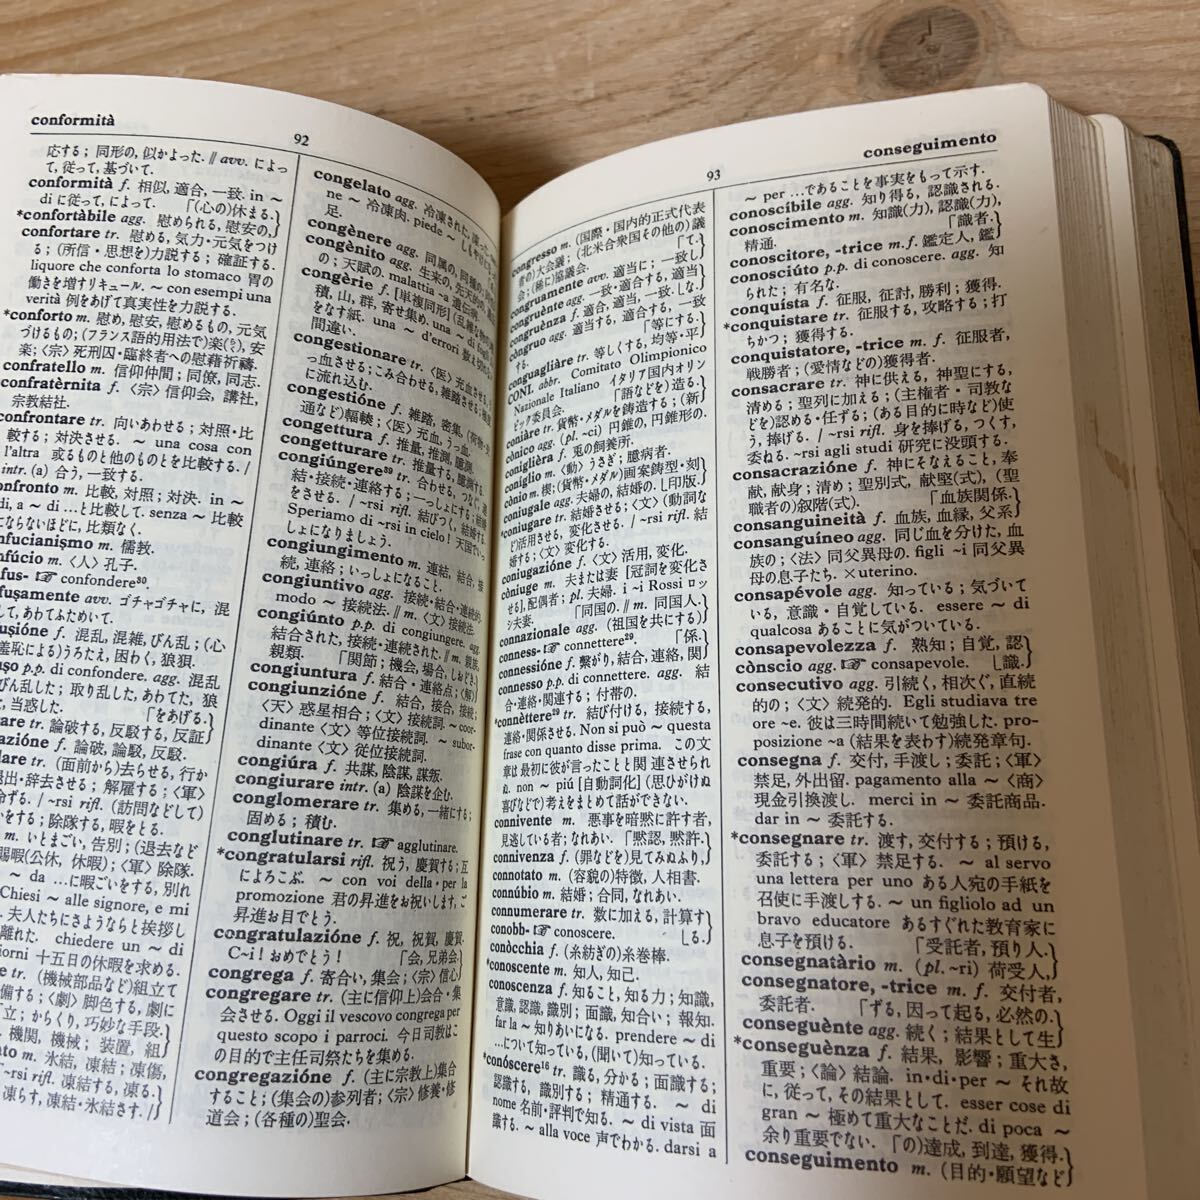 conformità
92
応する; 同形の, 似かよった. ∥ avv. によっ
て, 従って, 基づいて.
conformità f. 相似, 適合, 一致. in ~
di に従って, によって. 「(心の)休まる.
*confortàbile agg. 慰められる, 慰安の,
confortare tr. 慰める, 気力・元気をつけ
る; (所信・思想を)力説する; 確証する.
liquore che conforta lo stomaco 胃の
働きを増すリキュール. ~ con esempi una
verità 例をあげて真実性を力説する.
*conforto m. 慰め, 慰安, 慰めるもの, 元気
づけるもの; (フランス語的用法で)楽, 安
楽; 〈宗〉死刑囚・臨終者への慰藉祈禱.
confratello m. 信仰仲間; 同僚, 同志.
confratèrnita f. 〈宗〉信仰会, 講社,
宗教結社.
confrontare tr. 向いあわせる; 対照・比
較する; 対決させる. ~ una cosa con
l'altra 或るものと他のものとを比較する. /
intr. (a) 合う, 一致する.
confronto m. 比較, 対照; 対決. in ~
di, a ~ di …と比較して. senza ~ 比較
にならないほどに, 比類なく.
nfucianismo m. 儒教.
nfúcio m. 〈人〉孔子.
fus- ☞ confondere³⁰
fuṣamente avv. ゴチャゴチャに, 混
して, あわてふためいて.
fuṣióne f. 混乱, 混雑, びん乱; (心
羞恥による)うろたえ, 困わく, 狼狽.
uso p.p. di confondere. agg. 混
びん乱した; 取り乱した, あわてた, 狼
た, 当惑した. 「をあげる.
are tr. 論破する, 反駁する, 反証
azióne f. 論破, 論駁, 反駁.
are tr. (面前から)去らせる, 行か
退出・辞去させる; 解雇する; 〈軍〉
/ ~rsi rifl. (訪問などして)
をする; 除隊する, 暇をとる.
m. いとまごい, 告別; (退去など
賜暇(公休, 休暇); 〈軍〉除隊.
~ da …に暇ごいをする, 別れ
Chiesi ~ alle signore, e mi
夫人たちにさようならと挨拶し
離れた. chiedere un ~ di
iorni 十五日の休暇を求める.
e tr. (機械部品など)組立て
備する; 〈劇〉脚色する, 劇に
立; からくり, 巧妙な手段.
機関, 機械; 装置, 組
ato m. 氷結, 凍結; 凍傷,
~rsi rifl. 凍結する, 凍る.
凍らす, 凍結・氷結さす. /
congelato agg. 冷凍された, 凍った.
ne ~ 冷凍肉. piede ~ しもやけた
足.
congènere agg. 同属の, 同種の
congènito agg. 生来の, 先天的
の; 天賦の. malattia ~a 遺伝病.
congèrie f. [単複同形] (乱雑な物の)
積, 山, 群, 寄せ集め. una ~ di
をなす紙. una ~ d'errori 数
間違い.
congestionare tr. 〈医〉充血
っ血させる; こみ合わせる, 雑踏させる
に流れ込む.
congestióne f. 雑踏, 密集, (荷物・交
通など)輻輳; 〈医〉充血, うっ血.
congettura f. 推量, 推測, 臆測.
congetturare tr. 推量する, 臆測する.
congiúngere³⁹ tr. 合わせる, つなぐ, 連
結・接続・連絡する; 一つしょにする; 結婚
をさせる. / ~rsi rifl. 結びつく, 結婚する.
Speriamo di ~rsi in cielo! 天国でいっ
しょになりましょう.
congiungimento m. 連結, 結合, 接
続, 連絡; いっしょになること.
congiuntivo agg. 接続・結合・連結的.
modo ~ 接続法. ∥ m. 〈文〉接続法.
congiúnto p.p. di congiungere. agg.
結合された, 接続・連絡された. ∥ m. 親族,
親類. 「関節; 機会, 場合, しおどき.
congiuntura f. 結合・連絡点; 〈解〉
congiunzióne f. 結合, 接合, 接続;
〈天〉惑星相合; 〈文〉接続詞. ~ coor-
dinante 〈文〉等位接続詞. ~ subor-
dinante 〈文〉従位接続詞.
congiúra f. 共謀, 陰謀, 謀叛.
congiurare intr. (a) 陰謀を企む.
conglomerare tr. 集める, 一緒にする;
固める; 積む.
conglutinare tr. ☞ agglutinare.
*congratularsi rifl. 祝う, 慶賀する; 互
によろこぶ. ~ con voi della・per la
promozione 君の昇進をお祝いします, ご
昇進おめでとう.
congratulazióne f. 祝, 祝賀, 慶賀.
C~i! おめでとう! 「会, 兄弟会.
congrega f. 寄合い, 集会; 〈宗〉信心
congregare tr. (主に信仰上)会合・集
会させる. Oggi il vescovo congrega per
questo scopo i parroci. 今日司教はこ
の目的で主任司祭たちを集める.
congregazióne f. (主に宗教上)集合
すること; (集会の)参列者; 〈宗〉修養・修
道会; (各種の)聖会.
93
conseguimento
congresso m. (国際・国内的正式代表
者の)大会議; (北米合衆国その他の)議
会; (稀に)協議会. 「て.
congruamente avv. 適当に; 一致し
congruènte agg. 一致・適合する, 適当
congruènza f. 適合, 適当, 一致. 〔な.
còngruo agg. 適当する, 適合する, 一致
する. 「等にする.
conguagliàre tr. 等しくする, 均等・平
CONI. abbr. Comitato Olimpionico
Nazionale Italiano イタリア国内オリン
ピック委員会. 「語などを)造る.
coniàre tr. 貨幣・メダルを鋳造する; (新
cònico agg. (pl. ~ci) 円錐の, 円錐形の.
coniglièra f. 兎の飼養所.
coniglio m. 〈動〉うさぎ; 臆病者.
cònio m. 楔; (貨幣・メダル)画案鋳型・刻
coniugale agg. 夫婦の, 結婚の. 〔印版.
*coniugare tr. 結婚させる; 〈文〉(動詞な
ど)活用させる, 変化させる. / ~rsi rifl. 結
婚する; 〈文〉変化する.
coniugazióne f. 〈文〉活用, 変化.
còniuge m. 夫または妻 [冠詞を変化さ
せる], 配偶者; pl. 夫婦. i ~i Rossi ロッ
シ夫妻. 「同国の. ∥ m. 同国人.
connazionale agg. (祖国を共にする)
conness- ☞ connettere²⁹. 「係.
connessióne f. 繋がり, 結合, 連絡, 関
connesso p.p. di connettere. agg. 結
合・連絡・関連する; 付帯の.
*connèttere²⁹ tr. 結び付ける, 接続する,
連絡・関係させる. Non si può ~ questa
frase con quanto disse prima. この文
章は最初に彼が言ったことと関連させられ
ぬ. non ~ piú [自動詞化] (思ひがけぬ
喜びなどで)考えをまとめて話ができない.
connivente m. 悪事を暗黙に許す者,
見逃している者; なれあい. 「黙認, 黙許.
connivenza f. (罪などを)見てみぬふり,
connotato m. (容貌の)特徴, 人相書.
connúbio m. 結婚; 合同, なれあい.
connumerare tr. 数に加える, 計算す
conobb- ☞ conoscere. 〔る.
conòcchia f. (糸紡ぎの)糸巻棒.
*conoscente m. 知人, 知己.
conoscenza f. 知ること, 知る力; 知識,
意識, 認識, 識別; 面識, 知合い; 報知.
far la ~ 知りあいになる. prendere ~ di
…について知っている, (聞いて)知っている.
*conóscere¹⁶ tr. 識る, 分かる; 面識する;
認識する, 識別する; 精通する. ~ di
nome 名前・評判で知る. ~ di vista 面
識する. ~ alla voce 声でわかる. darsi a
~ per …であることを事実をもって示す.
conoscíbile agg. 知り得る, 認識される.
conoscimento m. 知識(力), 認識(力),
精通. 「識者.
conoscitore, -trice m.f. 鑑定人, 鑑
conosciúto p.p. di conoscere. agg. 知
られた; 有名な.
conquista f. 征服, 征討, 勝利; 獲得.
*conquistare tr. 征服する, 攻略する; 打
ちかつ; 獲得する.
conquistatore, -trice m.f. 征服者,
戦勝者; (愛情などの)獲得者.
consacrare tr. 神に供える, 神聖にする,
清める; 聖列に加える; (主権者・司教な
どを)認める・任ずる; (ある目的に時など)使
う, 捧げる. / ~rsi rifl. 身を捧げる, つくす,
委ねる. ~rsi agli studi 研究に没頭する.
consacrazióne f. 神にそなえること, 奉
献, 献身; 清め; 聖別式, 献堂(式), (聖
職者の)叙階(式). 「血族関係.
consanguineità f. 血族, 血縁, 父系
consanguíneo agg. 同じ血を分けた, 血
族の; 〈法〉同父異母の. figli ~i 同父異
母の息子たち. ×uterino.
consapévole agg. 知っている; 気づいて
いる, 意識・自覚している. essere ~ di
qualcosa あることに気がついている.
consapevolezza f. 熟知; 自覚, 認
cònscio agg. ☞ consapevole. 〔識.
consecutivo agg. 引続く, 相次ぐ, 直続
的の; 〈文〉続発的. Egli studiava tre
ore ~e. 彼は三時間続いて勉強した. pro-
posizione ~a (結果を表わす)続発章句.
consegna f. 交付, 手渡し; 委託; 〈軍〉
禁足, 外出留. pagamento alla ~ 〈商〉
現金引換渡し. merci in ~ 委託商品.
dar in ~ 委託する.
*consegnare tr. 渡す, 交付する; 預ける,
委託する; 〈軍〉禁足する. ~ al servo
una lettera per uno ある人宛の手紙を
召使に手渡しする. ~ un figliolo ad un
bravo educatore あるすぐれた教育家に
息子を預ける. 「受託者, 預り人.
consegnatàrio m. (pl. ~ri) 荷受人,
consegnatore, -trice m. f. 交付者,
委託者. 「ずる, 因って起る, 必然の.
conseguènte agg. 続く; 結果として生
*conseguènza f. 結果, 影響; 重大さ,
重要; 〈論〉結論. in・di・per ~ それ故
に, 従って, その結果として. esser cose di
gran ~ 極めて重大なことだ. di poca ~
余り重要でない. 「の)達成, 到達, 獲得.
conseguimento m. (目的・願望など